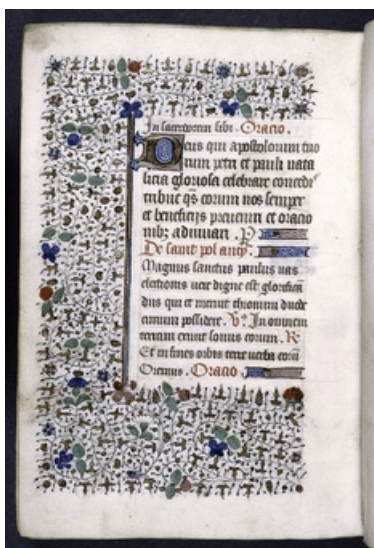 In sacerdotem sibi. Oracio.
Deus qui apostolorum tuo
rum petri et pauli nata
licia gloriosa celebrare concedis
tribue qs eorum nos semper
et beneficijs preueniri et oracio
nibz adiuuari. P
De saint pol anth
Magnus sanctus paulus uas
electionis uere digne est glorificandus
qui et meruit thronum duode
cimum possidere. V In omnem
terram exiuit sonus eorum. R
Et in fines orbis terre uerba eorum
Oremus. Oracio